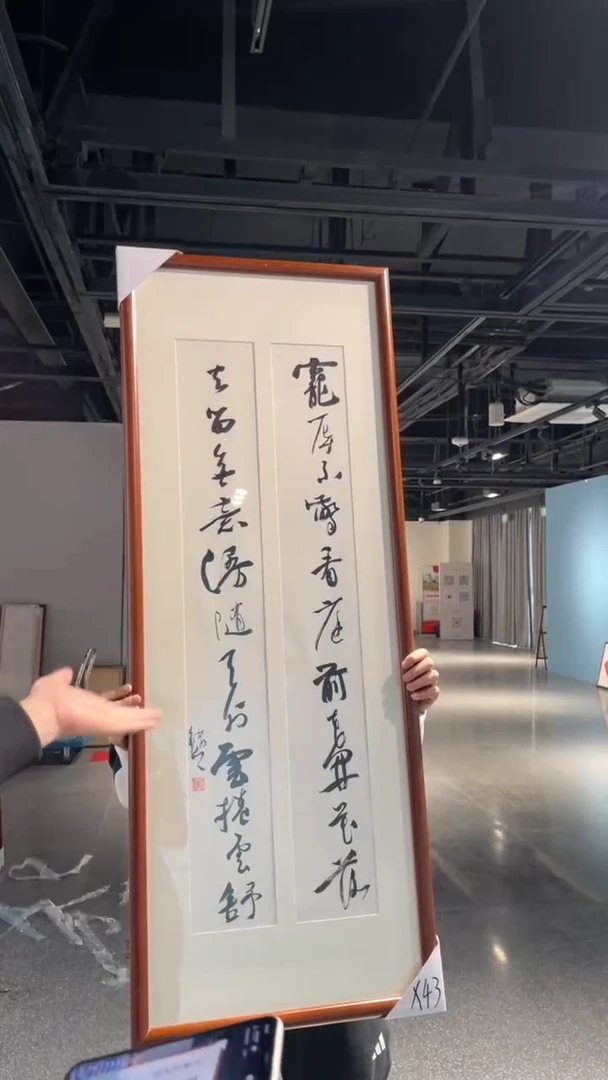 寵辱不驚看庭前花開花落
去留無意漫隨天外雲捲雲舒
X43